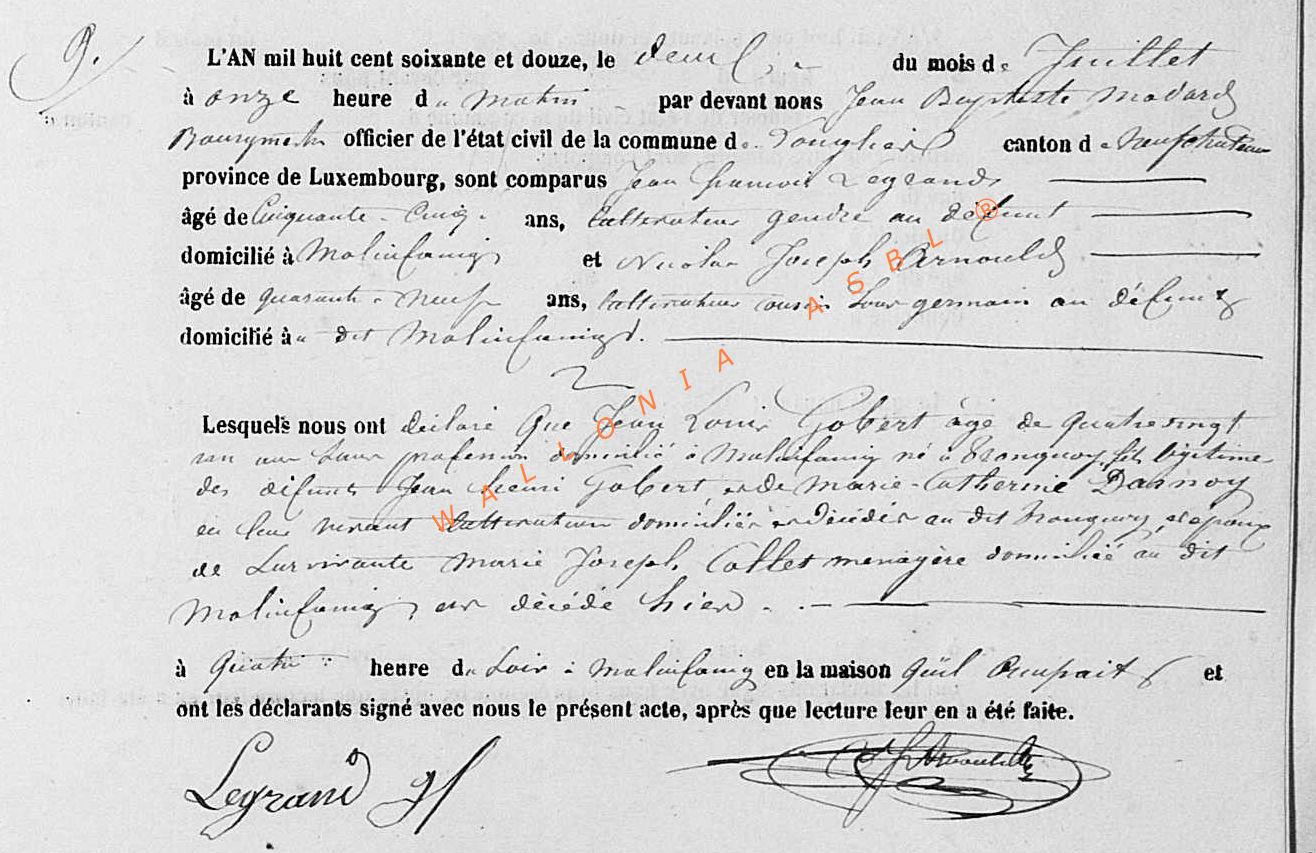 9.
L'AN mil huit cent soixante et douze, le deux du mois de Juillet
à onze heure du matin par devant nous Jean Baptiste Médard
Bourgmestre officier de l'état civil de la commune de Longlier canton de Neufchateau
province de Luxembourg, sont comparus Jean François Legrand
âgé de Cinquante-Cinq ans, Cultivateur gendre au défunt
domicilié à Molinfaing et Nicolas Joseph Arnould
âgé de quarante-neuf ans, Cultivateur cousin sous germain au défunt
domicilié au dit Molinfaing.
Lesquels nous ont déclaré que Jean Louis Gobert âgé de quatrevingt
ans sans profession domicilié à Molinfaing né à Tronquoy fils légitime
des défunts Jean Henri Gobert, et de Marie-Catherine Darnoy
en leur vivant Cultivateurs domiciliés et décédés au dit Tronquoy, et époux
de Survivante Marie Joseph Collet menagère domicilié au dit
Molinfaing est décédé hier
à Quatre heure du Soir à Molinfaing en la maison qu'il occupait et
ont les déclarants signé avec nous le présent acte, après que lecture leur en a été faite.
Legrand jf
NJ Arnould
WALLONIA ASBL ®